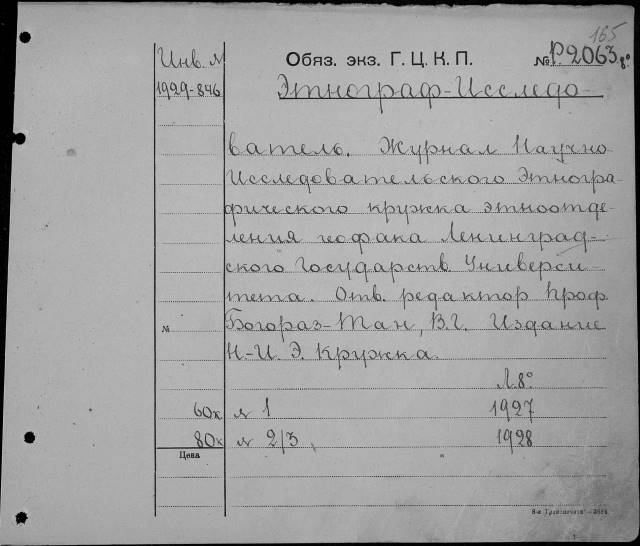 165
Инв. № Обяз. экз. Г. Ц. К. П. № Р.2063 8°
1929-846 Этнограф-Исследо-
ватель. Журнал Научно
Исследовательского Этногра-
фического кружка этноотде-
ления геофака Ленинград-
ского Государств. Универси-
тета. Отв. редактор Проф
№ Богораз-Тан, В.Г. Издание
Н-И. Э. Кружка.
Л. 8°
60к № 1 1927
80к № 2/3 1928
Цена